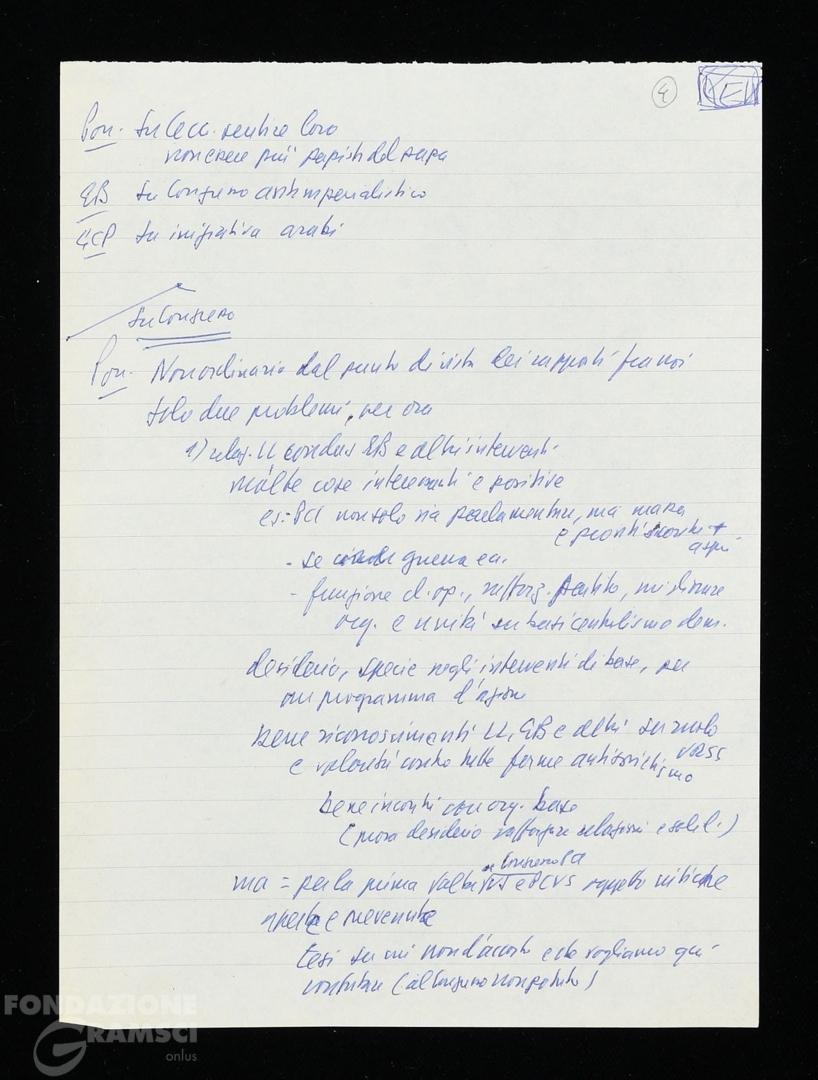 4
Pon. Su Cecc. sentire loro
non essere più papisti del papa
EB Su Congresso antimperialistico
GCP Su iniziativa arabi
Su Congresso
Pon. Non ordinario dal punto di vista dei rapporti fra noi
solo due problemi, per ora
1) relaz. LL conclus EB e altri interventi
molte cose interessanti e positive
es: PCI non solo via parlamentare, ma massa
e pronti scontri +
aspri
- se guerra ecc.
- funzione cl. op., rafforz. partito, migliorare
org. e unità su basi centralismo dem.
desiderio, specie negli interventi di base, per
un programma d'azione
bene riconoscimenti LL, EB e altri su ruolo
URSS
e volontà contro tutte forme antisovietismo
bene incontri con org. base
(prova desiderio rafforzare relazioni e solid.)
Congresso
ma = per la prima volta e PCUS oggetto critiche
aperte e prevenute
tesi su cui non d'accordo e che vogliamo qui
confutare (al Congresso non potuto)
FONDAZIONE
GRAMSCI
onlus